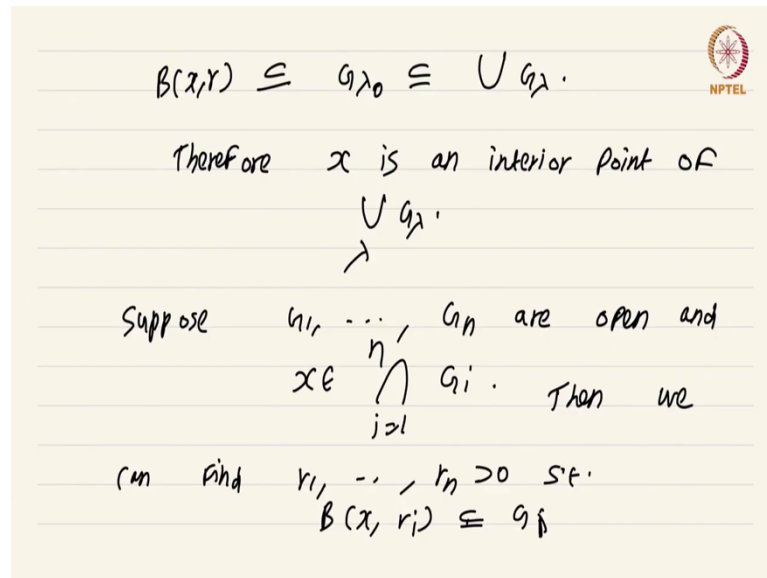 B(x,r) ⊆ G_{λ_0} ⊆ ⋃ G_λ.
NPTEL
Therefore x is an interior point of
⋃_λ G_λ.
Suppose G_1, ..., G_n are open and
x ∈ ⋂_{i=1}^{n} G_i. Then we
can find r_1, ..., r_n >0 s.t.
B(x, r_i) ⊆ G_i